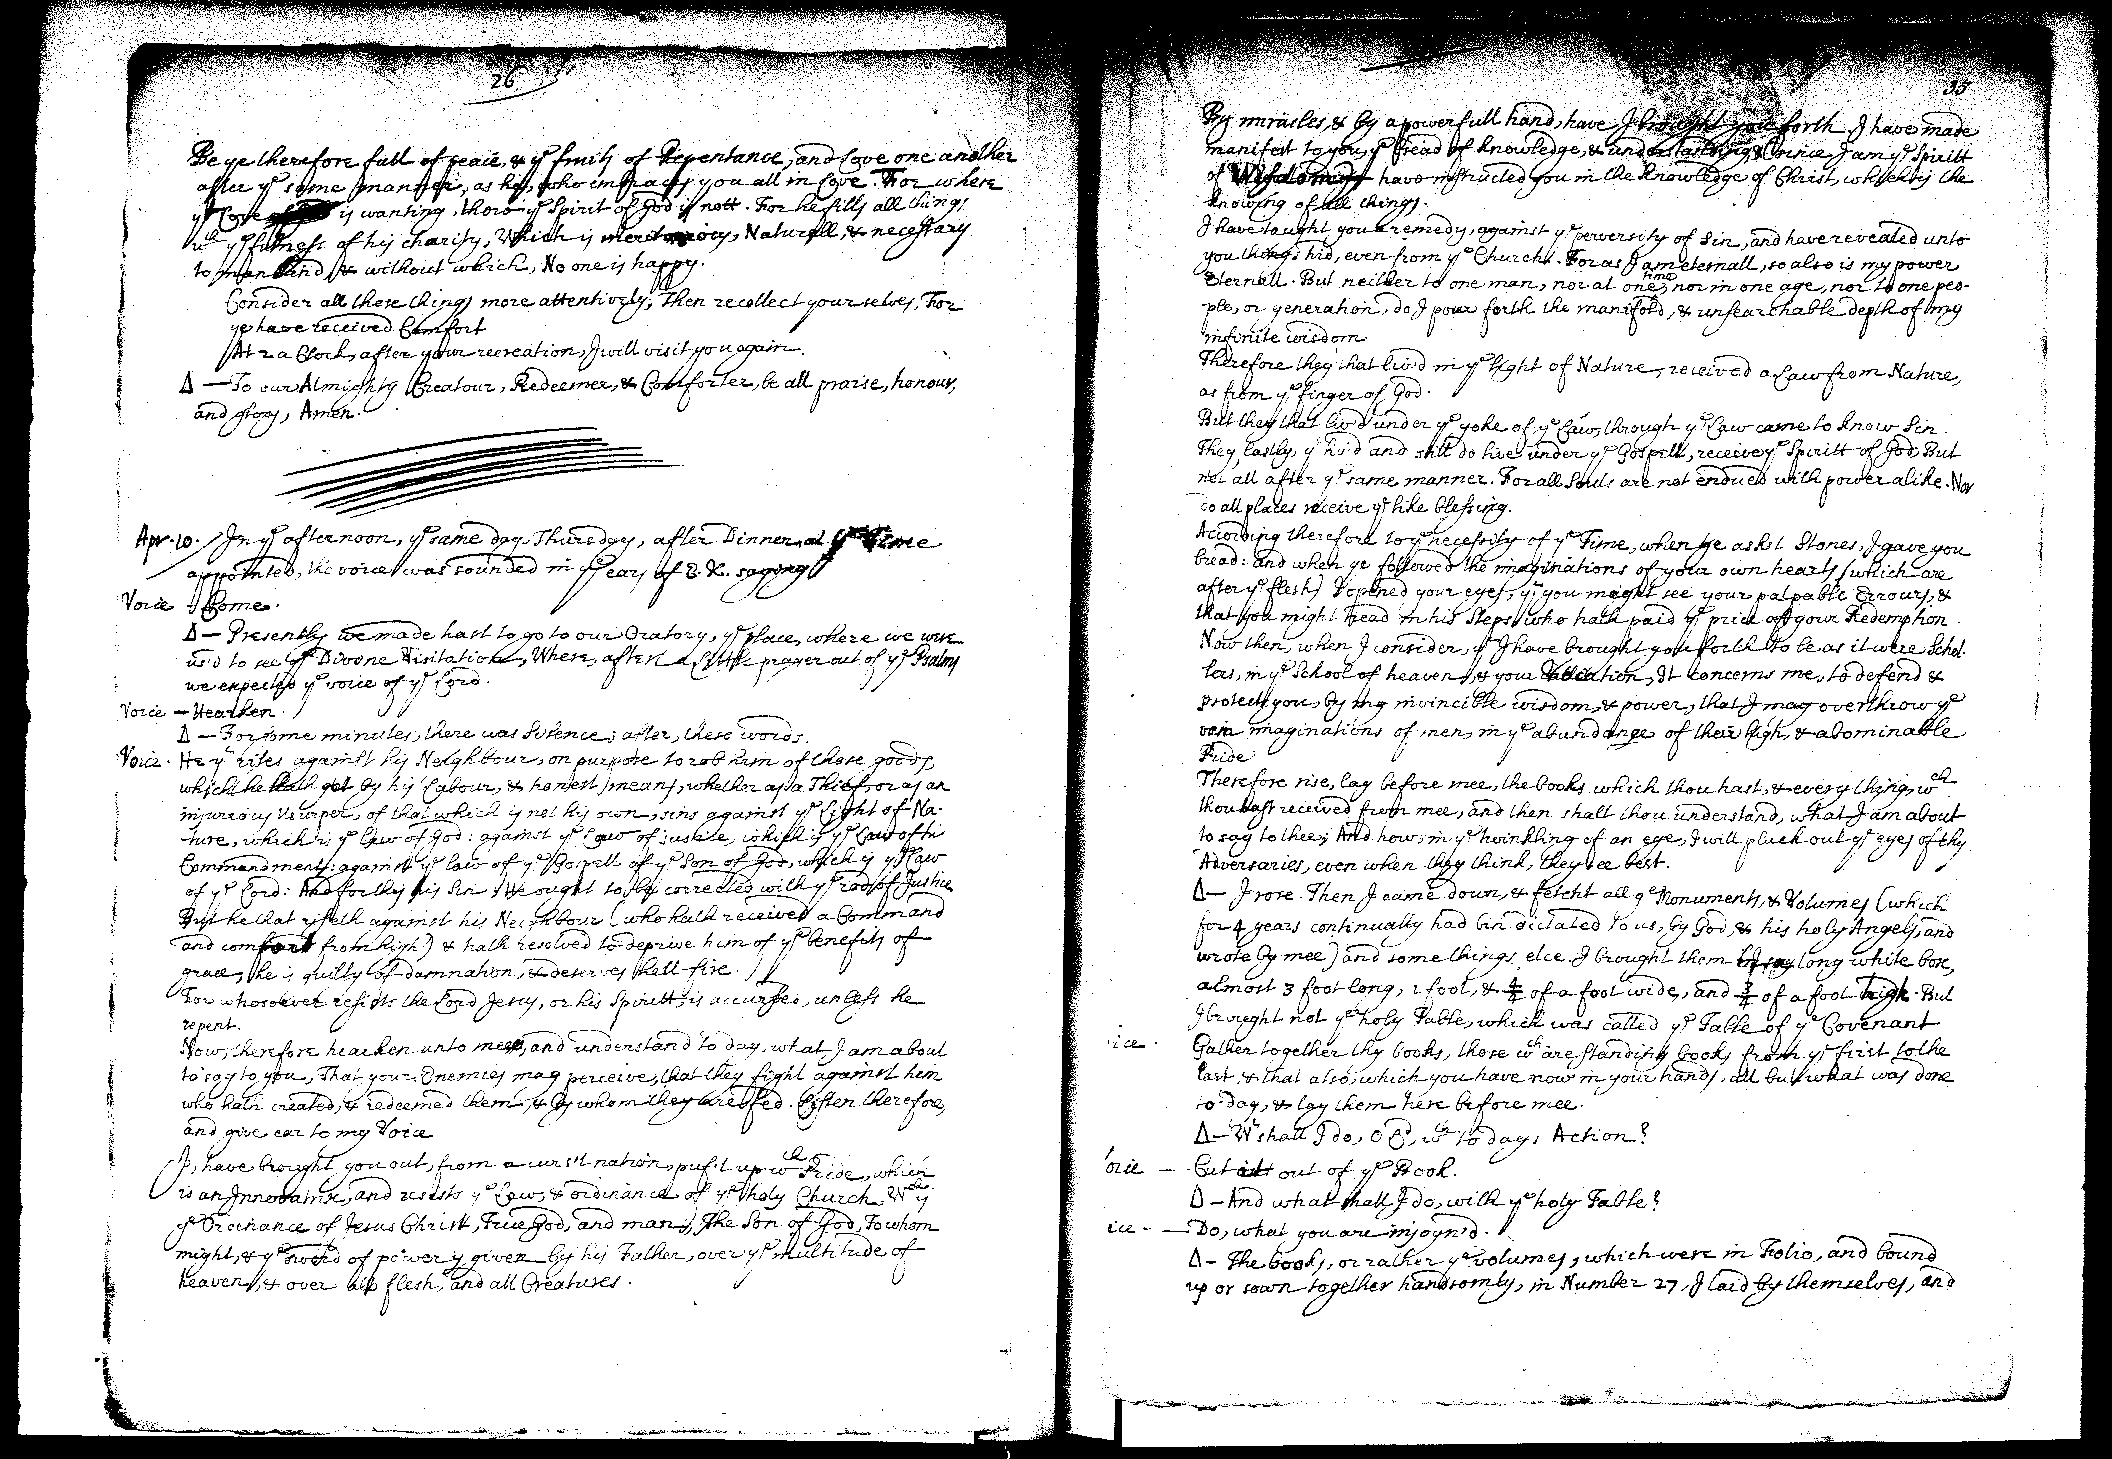 26
Be ye therefore full of peace, & yᵉ fruits of Repentance, and love one another
after yᵉ same manner, as he, who imbraces you all in love. For where
yᵉ Love is wanting, there yᵉ Spirit of God is nott. For he fills all things
wᵗʰ yᵉ fulness of his charity, Which is meritorious, Naturall, & necessary
to mankind & without which, No one is happy.
Consider all these things more attentively, then recollect yourselves. For
ye have received Comfort
At 2 a Clock, after your recreation, I will visit you again.
Δ — To our Almighty Creatour, Redeemer, & Comforter, be all praise, honour,
and glory, Amen.
Apr. 10. In yᵉ afternoon, yᵉ same day Thursday, after Dinner, at yᵉ Time
appointed, the voice was sounded in yᵉ ears of E. K. saying
Voice - Come.
Δ — Presently we made hast to go to our Oratory, yᵉ place, where we were
us'd to see yᵉ Divine Visitation, Where, after a little prayer out of yᵉ Psalms
we expected yᵉ voice of yᵉ Lord.
Voice — Hearken.
Δ — For some minutes, there was Silence; after, these words.
Voice. He yᵗ rises against his Neighbour, on purpose to rob him of those goods,
which he hath got by his Labour, & honest means, whether as a Thief, or as an
injurious Usurper, of that which is not his own, sins against yᵉ Light of Na-
ture, which is yᵉ Law of God: against yᵉ Law of justice, which is yᵉ Law of his
Commandments: against yᵉ law of yᵉ Gospell of yᵉ Son of God, which is yᵉ Law
of yᵉ Lord: And for this his Sin he ought to be corrected with yᵉ rod of Justice
But he that riseth against his Neighbour (who hath received a Command
and comfort from high) & hath resolved to deprive him of yᵉ benefits of
grace, he is guilty of damnation, & deserves hell-fire.
For whosoever resists the Lord Jesus, or his Spiritt, is accursed, unless he
repent.
Now, therefore hearken unto mee, and understand to day, what I am about
to say to you, That your Enemies may perceive, that they fight against him
who hath created, & redeemed them, & by whom they are fed. Listen therefore,
and give ear to my Voice
I, have brought you out, from a curs't nation, puf't up wᵗʰ Pride, which
is an Innovatrix, and resists yᵉ Law, & ordinance of yᵉ holy Church. Wᶜʰ is
yᵉ Ordinance of Jesus Christ, True God, and man, The Son of God, To whom
might, & yᵉ sword of power is given by his Father, over yᵉ multitude of
heaven, & over all flesh, and all Creatures.
35
By miracles, & by a powerfull hand, have I brought you forth I have made
manifest to you, yᵉ bread of knowledge, & understanding, since I am yᵉ Spiritt
of Wisdom, have instructed you in the knowledge of Christ, which is the
knowing of all things.
I have taught you a remedy, against yᵉ perversity of sin, and have revealed unto
you things hid, even from yᵉ Church. For as I am eternall, so also is my power
Eternall. But neither to one man, nor at one time, nor in one age, nor to one peo-
ple, or generation, do I pour forth the manifold, & unsearchable depth of my
infinite wisdom
Therefore they that liv'd in yᵉ light of Nature, received a Law from Nature,
as from yᵉ finger of God.
But they that liv'd under yᵉ yoke of yᵉ Law, through yᵉ Law came to know Sin.
They, lastly, yᵗ liv'd and still do live under yᵉ Gospell, receive yᵉ Spiritt of God, But
not all after yᵉ same manner. For all Souls are not endued with power alike. Nor
do all places receive yᵉ like blessing.
According therefore to yᵉ necessity of yᵉ Time, when ye askt Stones, I gave you
bread: and when ye followed the imaginations of your own hearts (which are
after yᵉ flesh) I opened your eyes, yᵗ you might see your palpable Errours, &
that you might tread in his Steps, who hath paid yᵉ price of your Redemption.
Now then, when I consider, yᵗ I have brought you forth to be as it were Schol-
lers, in yᵉ School of heaven, & your Vocation, It concerns me, to defend &
protect you, by my invincible wisdom, & power, that I may overthrow yᵉ
vain imaginations of men, in yᵉ abundance of their high, & abominable
Pride
Therefore rise, lay before mee, the books which thou hast, & every thing, wᶜʰ
thou hast received from mee, and then shalt thou understand, what I am about
to say to thee; And how, in yᵉ twinkling of an eye, I will pluck out yᵉ eyes of thy
Adversaries, even when they think, they see best.
Δ — I rose. Then I came down, & fetcht all yᵉ Monuments, & Volumes (which
for 4 years continually had bin dictated to us, by God, & his holy Angels, and
wrote by mee) and some things else. I brought them long white box,
almost 3 foot long, 1 foot, & of a foot wide, and of a foot high. But
I brought not yᵉ holy Table, which was called yᵉ Table of yᵉ Covenant
ice. Gather together thy books, those wᶜʰ are standing books from yᵉ first to the
last, & that also, which you have now in your hands, all but what was done
to day, & lay them here before mee.
Δ — Wᵗ shall I do, O Ld, wᵗʰ to days Action?
oice — Cut it out of yᵉ Book.
Δ — And what shall I do, with yᵉ holy Table?
ice - — Do, what you are injoyn'd.
Δ — The books, or rather yᵉ volumes, which were in Folio, and bound
up or sown together handsomly, in Number 27, I laid by themselves, and